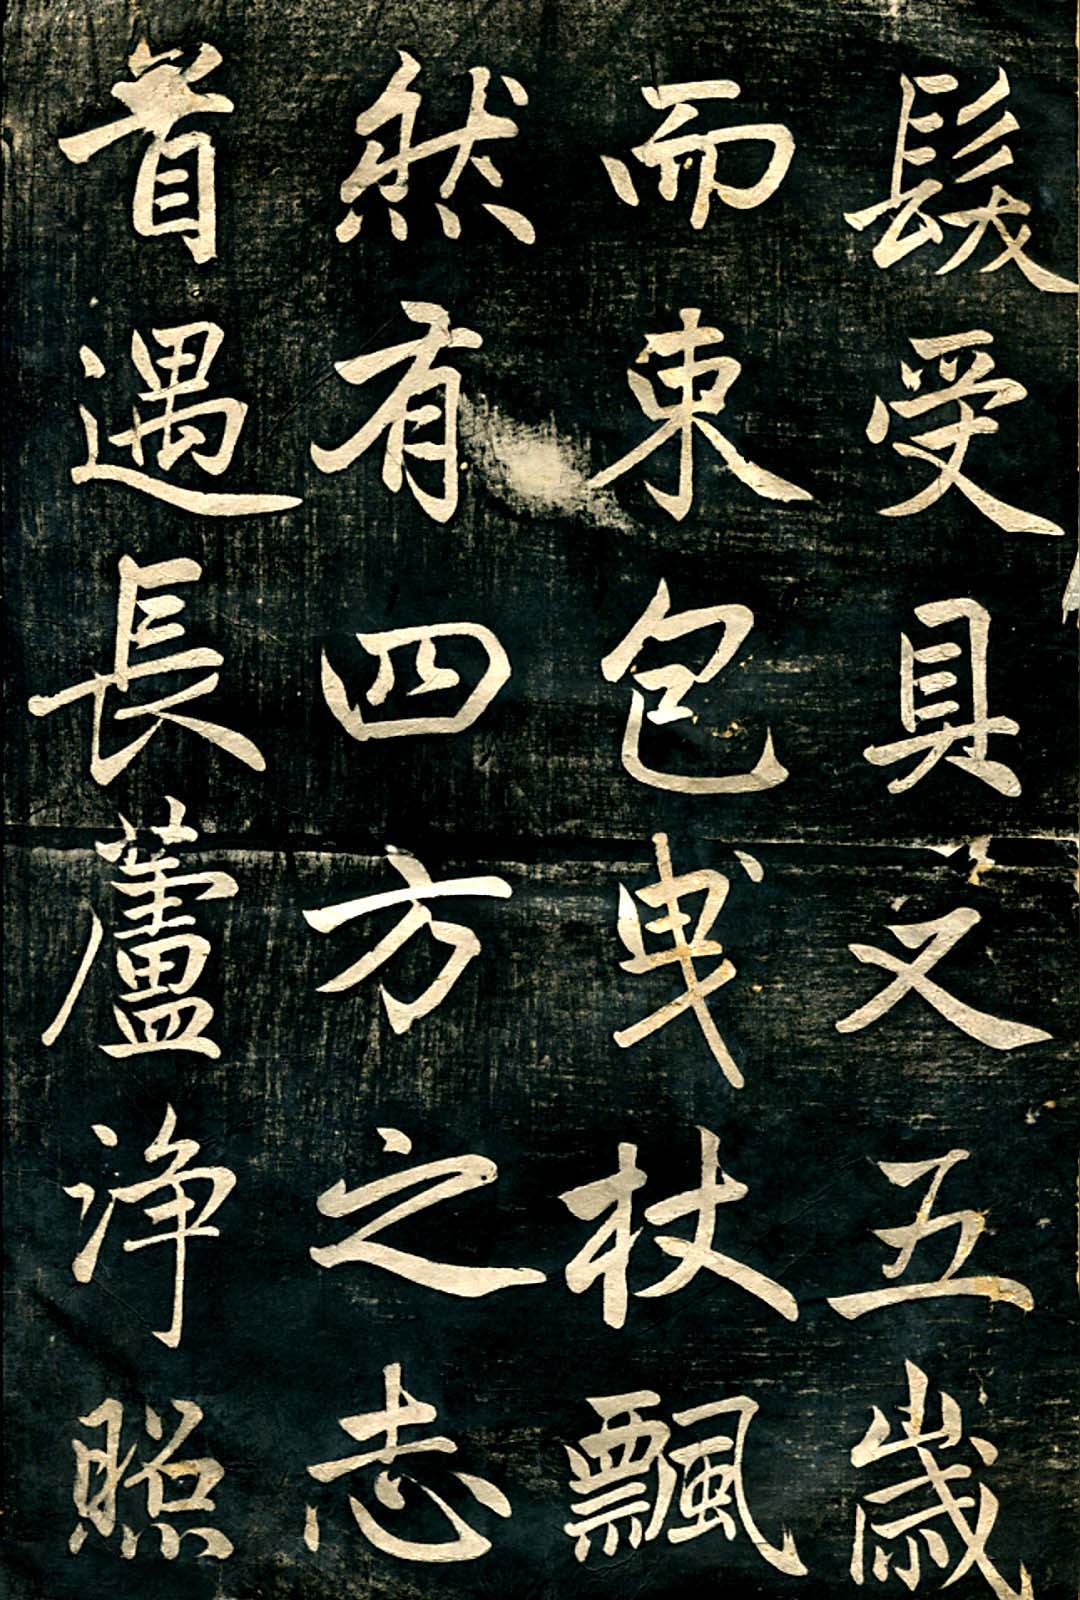 髮受具又五歲
而束包曳杖飄
然有四方之志
首遇長蘆淨照